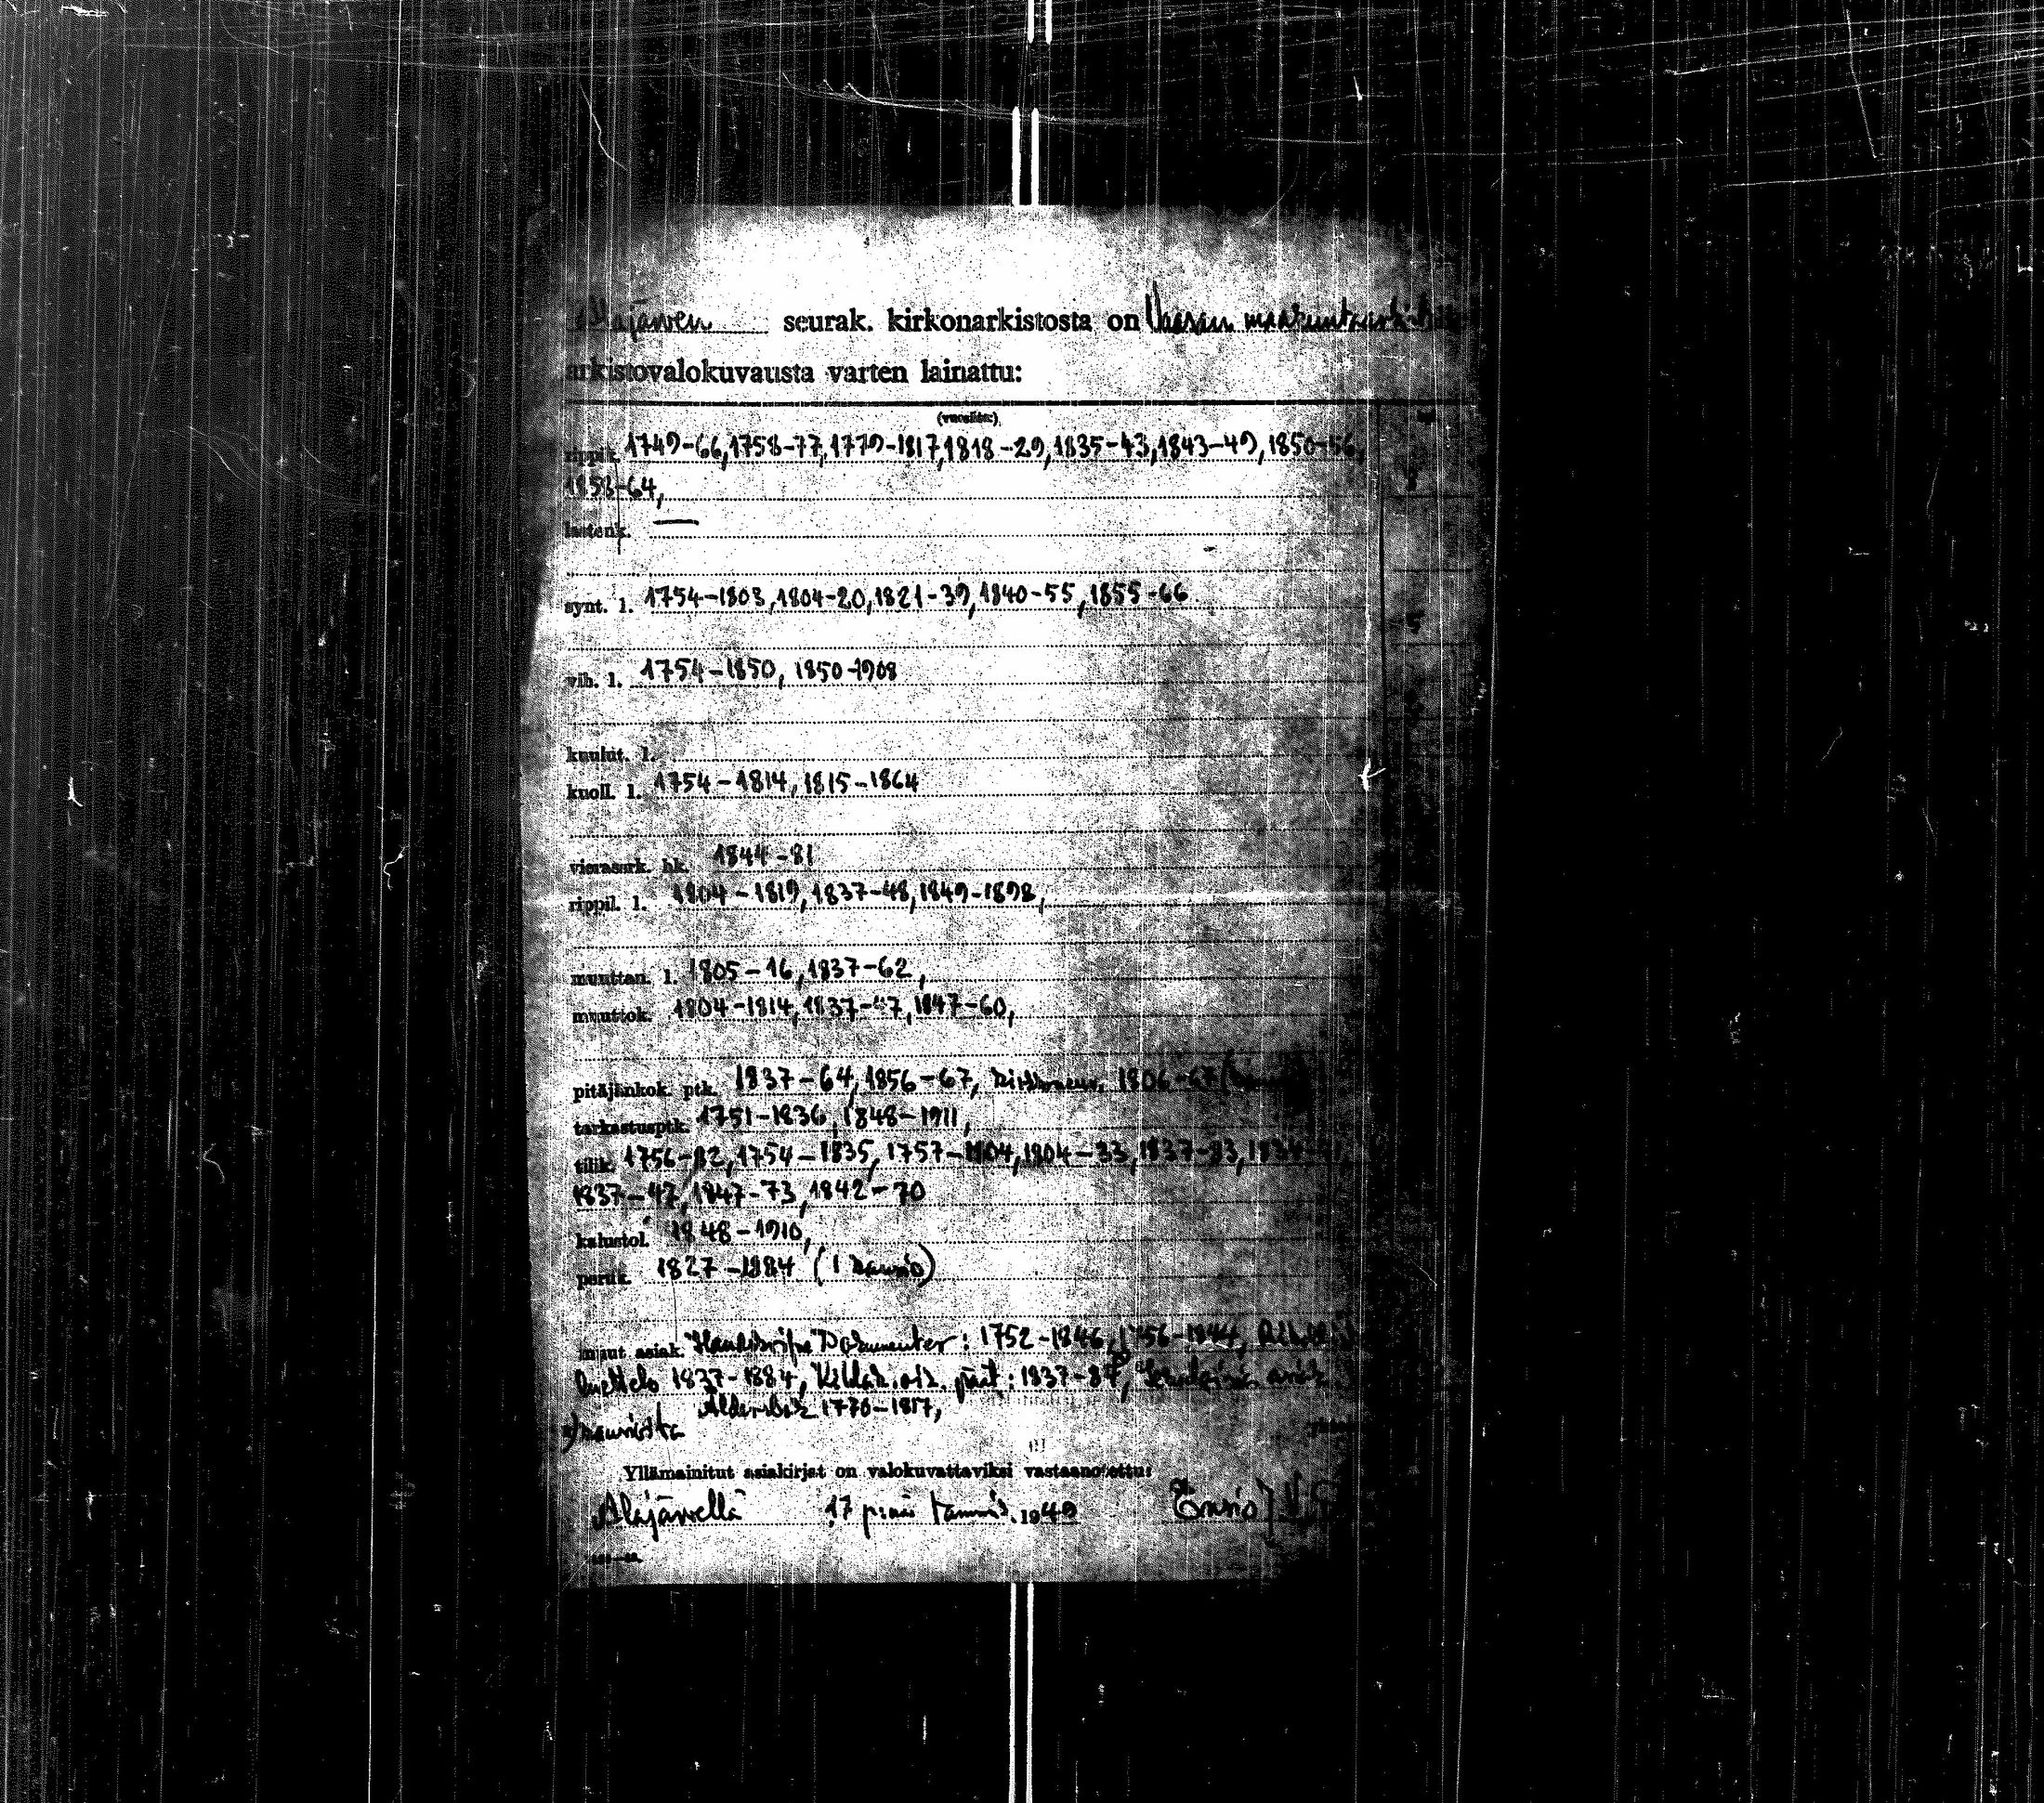 Alajärven seurak. kirkonarkistosta on Vaasan maakunta
arkistovalokuvausta varten lainattu:
(vuosilta:)
rippik. 1749-66, 1758-77, 1779-1817, 1818-29, 1835-43, 1843-49, 1850-56,
1858-64,
lastenk. —
synt. l. 1754-1803, 1804-20, 1821-39, 1840-55, 1855-66.
5
vih. l. 1754-1850, 1850-1908
kuulut. l.
kuoll. l. 1754-1814, 1815-1864
vierassrk. hk. 1844-81
rippil. l. 1804-1819, 1837-48, 1849-1898,
muuttan. l. 1805-16, 1837-62,
muuttok. 1804-1814, 1837-47, 1847-60,
pitäjänkok. ptk. 1837-64, 1856-67, 1806-67
tarkastusptk. 1751-1836, 1848-1911,
tilik. 1756-82, 1754-1835, 1757-1804, 1804-33, 1837-83,
1837-47, 1847-73, 1842-70
kalustol. 1848-1910,
peruk. 1827-1884 (1 kansio)
muut asiak. Dokumenter: 1752-1846, 1756-1844,
luettelo 1837-1884, 1837-84,
1770-1817,
Yllämainitut asiakirjat on valokuvattaviksi vastaanotettu:
Alajärvellä 17 p:nä tammik. 1949 Ensio